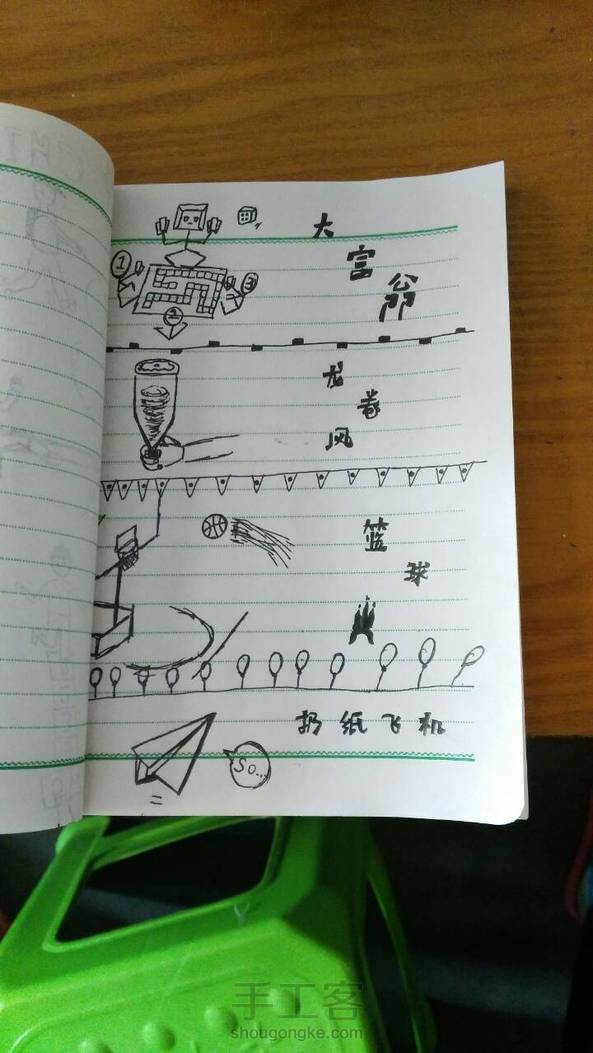 大富翁
1
3
2
龙卷风
篮球
扔纸飞机
So...
二
手工客
shougongke.com